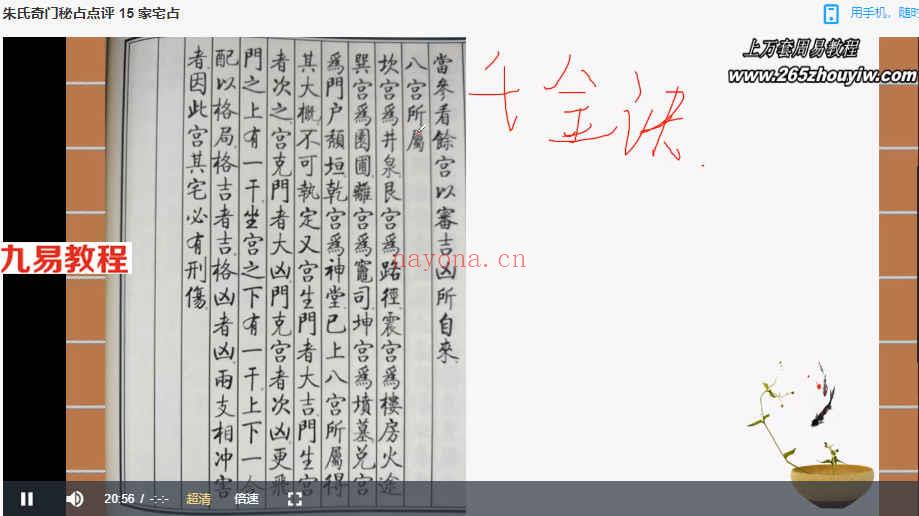 朱氏奇门秘占点评 15 家宅占
用手机，随时
當參看餘宫以審吉凶所自來
八宫所屬
坎宫爲井泉艮宫爲路徑震宫爲樓房火途
巽宫爲園圃離宫爲竈司坤宫爲墳墓兑宫
爲門户頽垣乾宫爲神堂已上八宫所屬得
其大槪不可執定又宫生門者大吉門生宫
者次之宫克門者大凶門克宫者次凶更飛
門之上有一干坐宫之下有一干上下一合
配以格局格吉者吉格凶者凶兩支相冲害
者因此宫其宅必有刑傷
千金诀
上万套周易教程
www.265zhouyiw.com
九易教程
nayona.cn
20:56 / -:-:-
超清
倍速